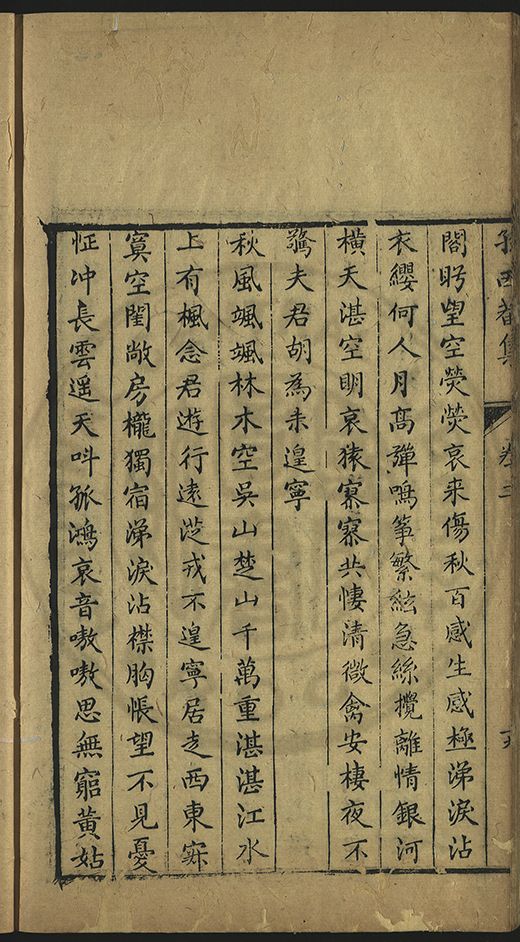 孫西菴集 卷二
閣盻望空熒熒哀來傷秋百感生感極涕淚沾
衣纓何人月高彈鳴箏繁絃急絲攪離情銀河
橫天湛空明哀猿寡寡共悽清微禽安棲夜不
驚夫君胡為未遑寧
秋風颯颯林木空吳山楚山千萬重湛湛江水
上有楓念君遊行遠從戎不遑寧居走西東寂
寞空閨敞房櫳獨宿涕淚沾襟胸悵望不見憂
怔冲長雲遥天呌孤鴻哀音嗷嗷思無窮黃姑